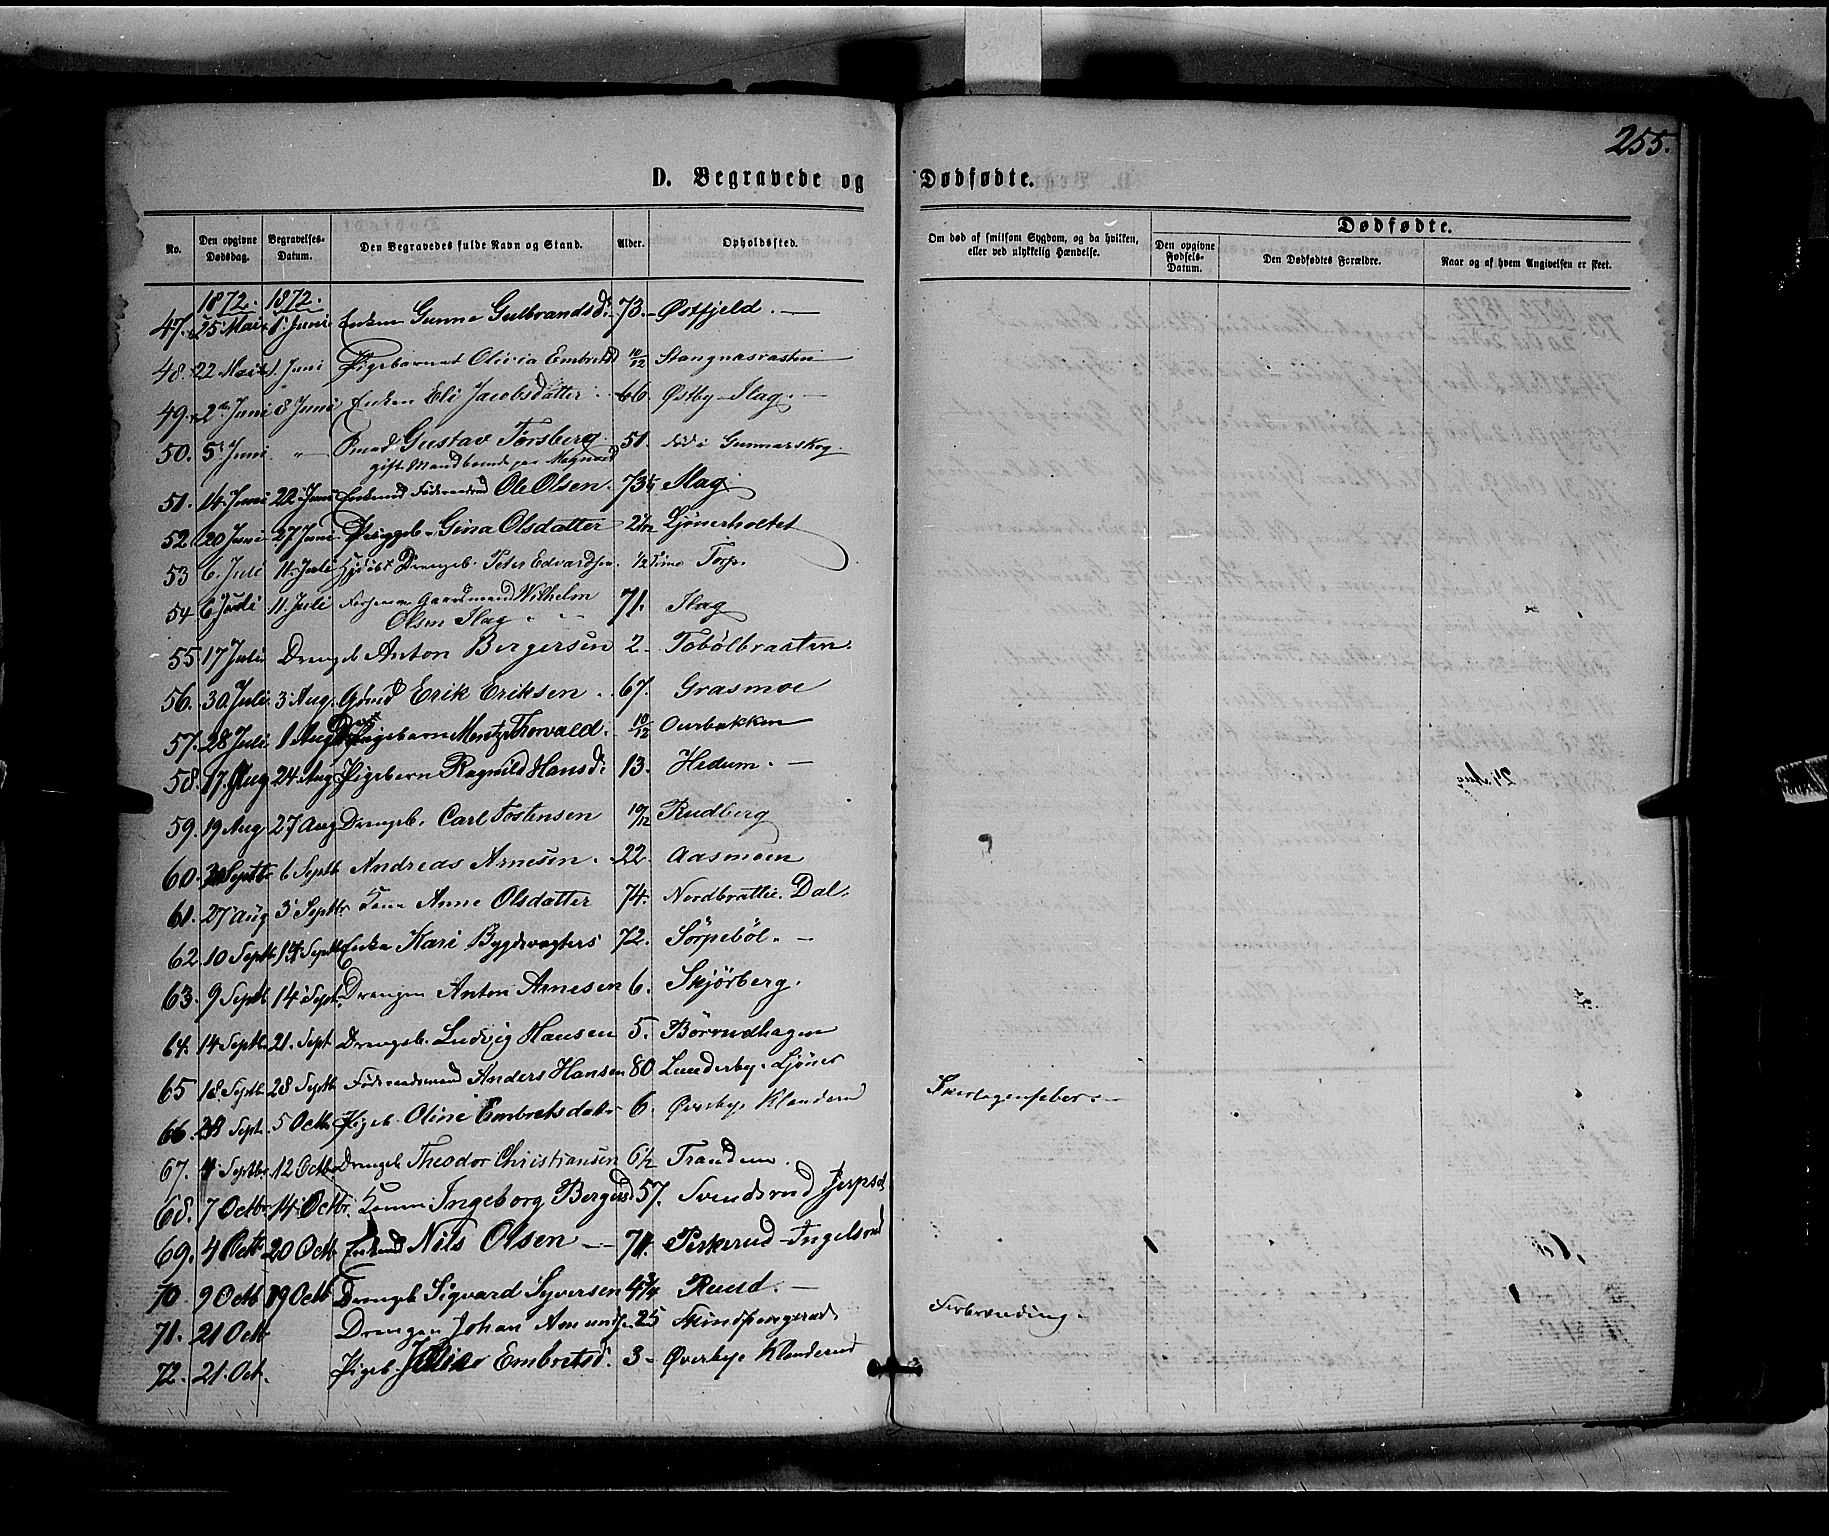 255.
D. Begravede og Dødfødte.
No. Den opgivne Dødsdag. Begravelses-Datum. Den Begravedes fulde Navn og Stand. Alder. Opholdssted. Om død af smitsom Sygdom, og da hvilken, eller ved ulykkelig Hændelse. Dødfødte. Den opgivne Fødsels-Datum. Den Dødfødtes Forældre. Naar og af hvem Angivelsen er skeet.
1872. 1872.
47. 25 Mai 8 Juni Enken Gunne Gulbrandsd. 73. Østfjeld.
48. 22 Mai 1 Juni Pigebarnet Olivia Embretsd 10/12 Stangnæsrasten
49. 2 Juni 8 Juni Enken Eli Jacobsdatter 66. Østby Flag.
50. 5 Juni " Gustav Torsberg. 51. død i Gunnarskog
gift Mand
51. 14 Juni 22 Juni Enkemd Føderaadsmd Ole Olsen. 73 1/2 Flag
52. 20 Juni 27 Juni Pigeb. Gina Olsdatter 2 Ljønerholtet
53 6. Juli 11. Juli Hjdøbt Drengeb. Peter Edvardsen. 1/2 Time Torp.
54 6 Juli 11. Juli Gaardmand Wilhelm
Olsen Flag 71. Flag
55. 17 Juli Drengeb Anton Bergersen 2. Tobølbraaten.
56. 30. Juli. 3 Aug. Gmd Erik Eriksen. 67. Grasmoe
57. 28 Juli 1 Aug Pigebarn Thorvald. 10/12 Ourbakken
58. 17. Aug 24 Aug Pigebarn Ragnild Hansd. 13. Hedum.
59. 19 Aug 27 Aug Drengeb. Carl Tostensen 10/12 Rudberg
60. Septbr 6 Septb Andreas Arnesen. 22. Aasmoen
61. 27 Aug 3 Septbr. Kone Anne Olsdatter 74. Nordbrattlie. Dal.
62. 10 Septb 14 Septb Enke Kari Bygdevogters 72. Sørpebøl.
63. 9 Septb. 14 Sept. Drengen Anton Arnesen 6. Skjørberg.
64. 14 Septb. 21. Sept Drengeb. Ludvig Hansen 5. Børrudhagen
65 18. Septb. 28 Septb Føderaadsmand Anders Hansen 80. Lunderby. Ljøner
66. 28 Sept. 5 Octb. Pigeb. Oline Embretsdatr 6. Øverbye Klanderud Skarlagensfeber.
67. Septbr. 12 Octbr. Drengeb Theodor Christiansen 6 1/2 Trandem.
68. 7 Octbr. 14. Octbr. Konen Ingeborg Bergersd 57. Svendsrud Jerpset
69. 4 Octb 20 Octb Enkemd Nils Olsen 71. Perkerud Ingelsrud
70. 9 Octb 19 Octb Drengeb Sigvard Syversen 4 3/4 Ruud.
71. 21 Octb Drengen Johan Amundsen 25 Forbrænding.
72. 21. Oct. Pigeb. Embretsd. 3 Øverbye Klanderud
24 Aug